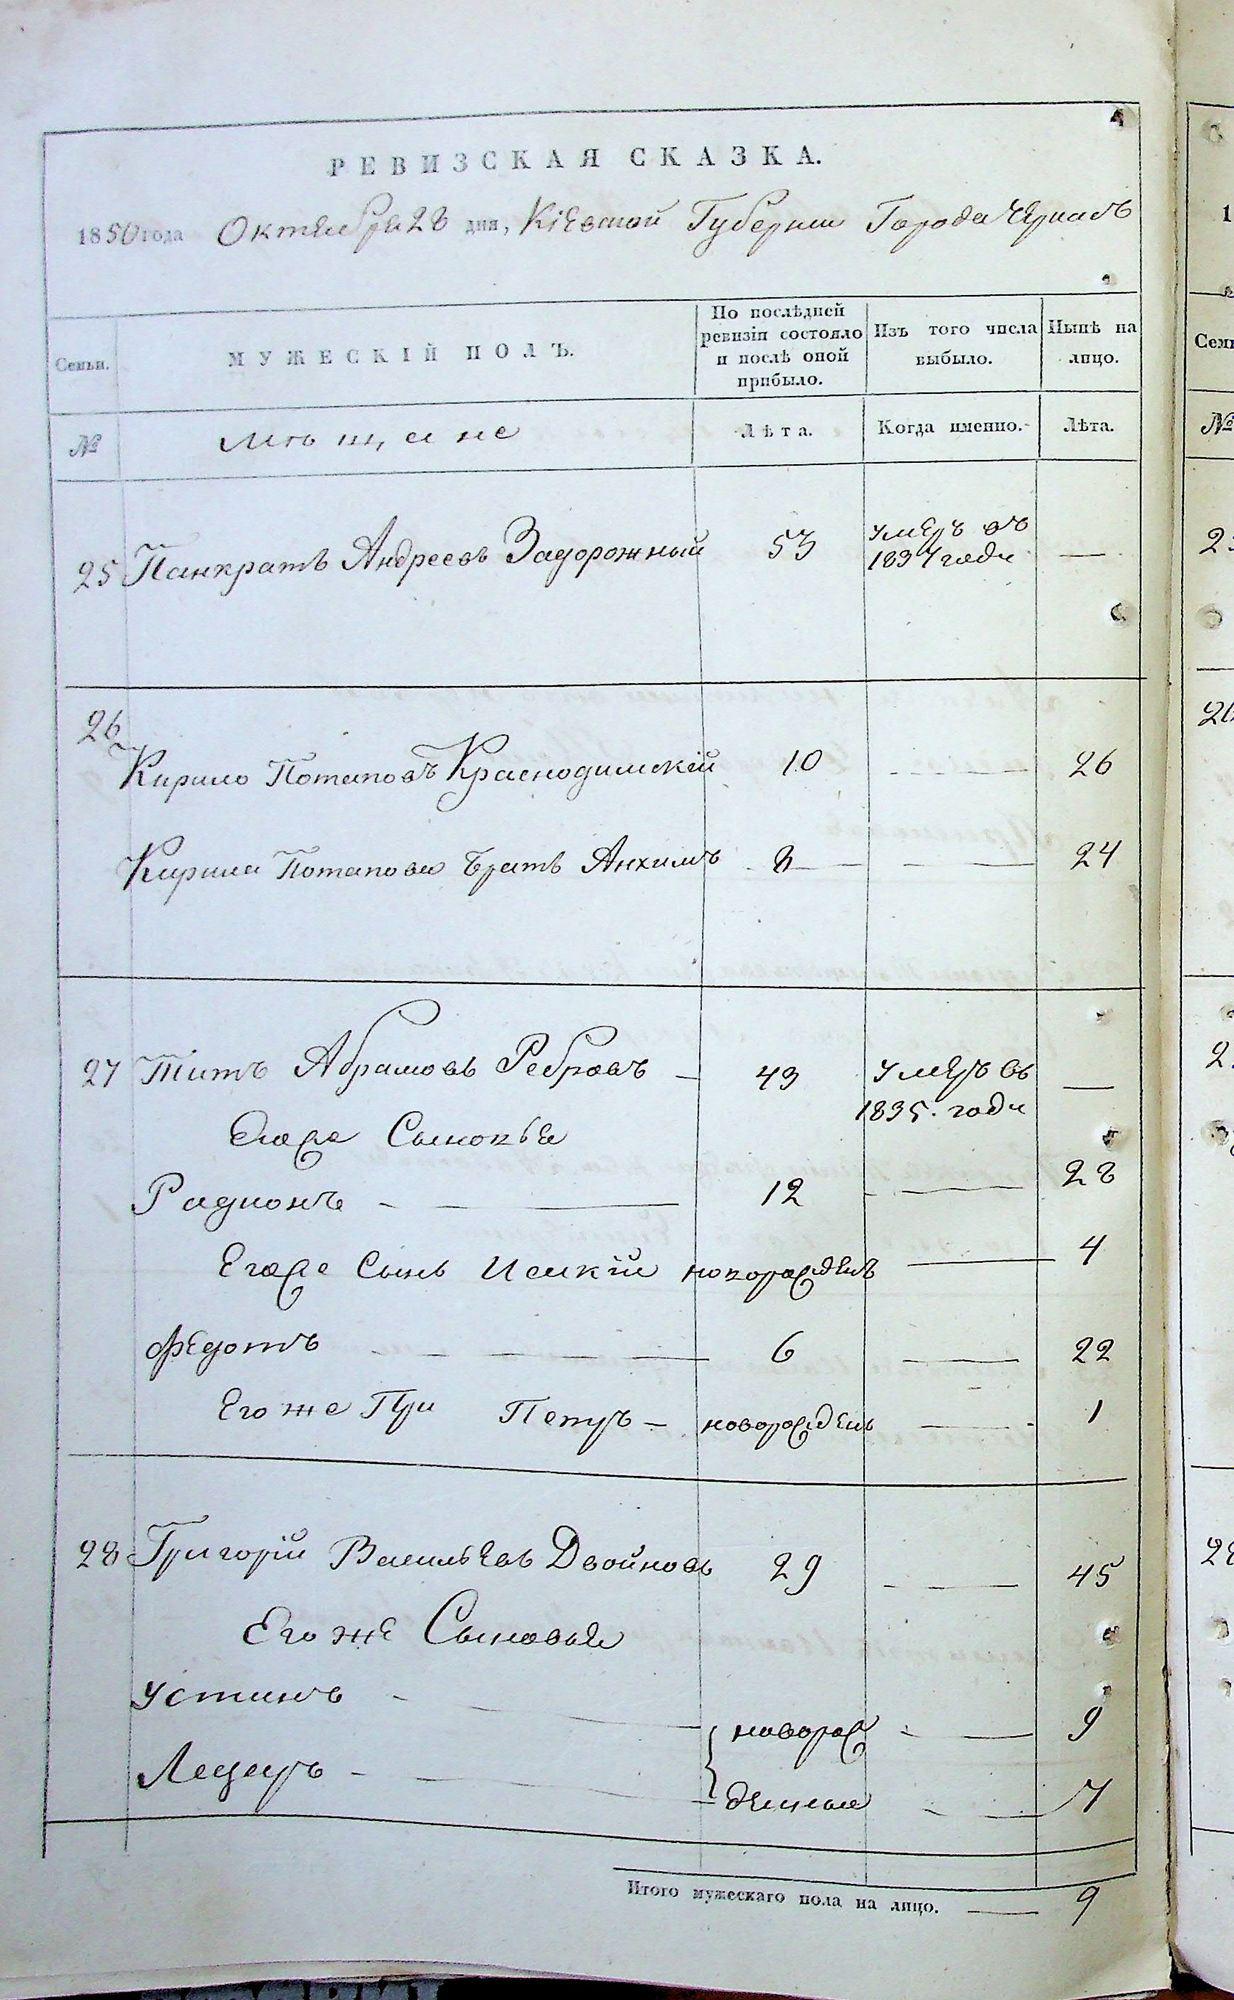 РЕВИЗСКАЯ СКАЗКА.
1850 года Октября 28 дня, Кіевской Губерніи Города Черкасъ
Семьи.
МУЖЕСКІЙ ПОЛЪ.
По послѣдней ревизіи состояло и послѣ оной прибыло.
Изъ того числа выбыло.
Нынѣ на лицо.
№
Мѣщане
Лѣта.
Когда именно.
Лѣта.
25 Панкратъ Андреевъ Задорожный 53 умеръ въ 1837 году —
26
Кирило Потаповъ 10 — 26
Кирила Потапова братъ Анхимъ 8 — — 24
27 Титъ Абрамовъ Ребровъ — 43 умеръ въ 1835. году —
Егоже Сыновья
Радионъ — 12 — 28
Егоже Сынъ новорожденъ — 4
Федотъ — 6 — 22
Егоже Петръ — новорожденъ — 1
28 Григорій Васильевъ Двойновъ 29 — 45
Егоже Сыновья
Устинъ — новорож — 9
— денные — 7
Итого мужескаго пола на лицо. — 9
Семьи
№